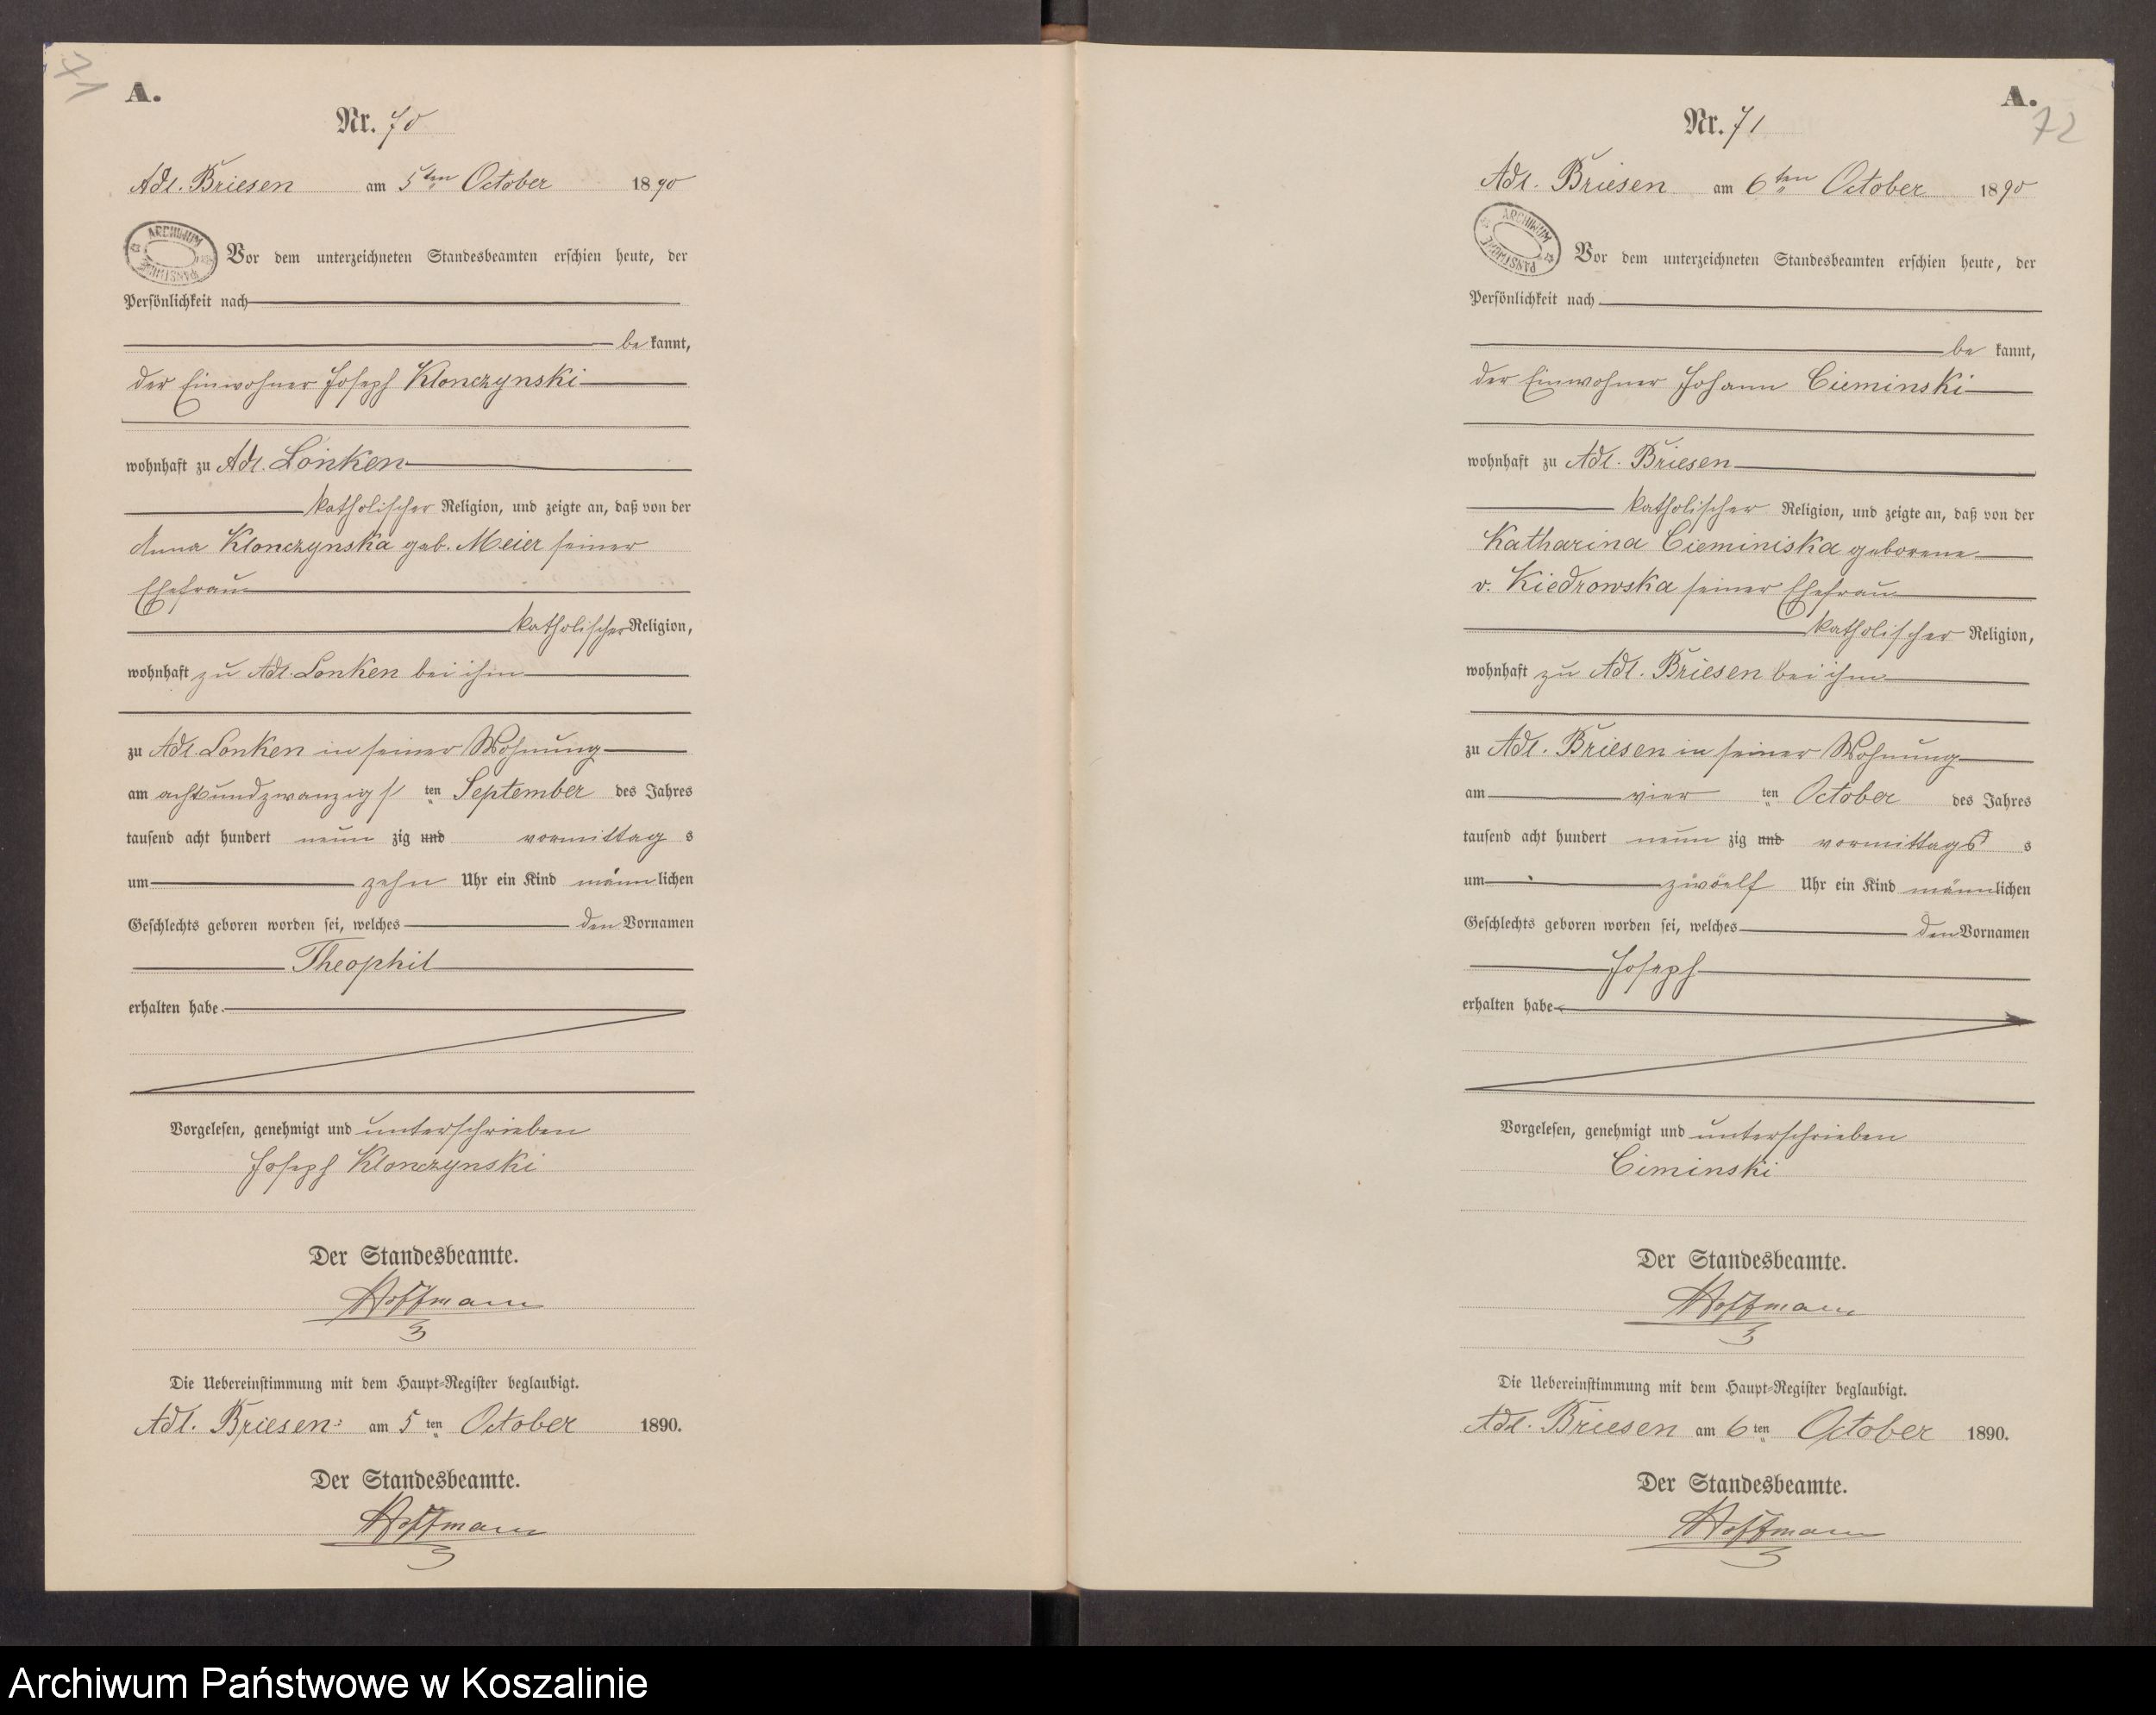 71
A.
Nr. 70
Adl. Briesen am 5ten October 1890
ARCHIWUM PAŃSTWOWE
Vor dem unterzeichneten Standesbeamten erschien heute, der
Persönlichkeit nach
be kannt,
der Einwohner Joseph Klonczynski
wohnhaft zu Adl. Lonken
katholischer Religion, und zeigte an, daß von der
Anna Klonczynska geb. Meier seiner
Ehefrau
katholischer Religion,
wohnhaft zu Adl. Lonken bei ihm
zu Adl. Lonken in seiner Wohnung
am achtundzwanzigs ten September des Jahres
tausend acht hundert neun zig und vormittag s
um zehn Uhr ein Kind männlichen
Geschlechts geboren worden sei, welches den Vornamen
Theophil
erhalten habe.
Vorgelesen, genehmigt und unterschrieben
Joseph Klonczynski
Der Standesbeamte.
Hoffmann
Die Uebereinstimmung mit dem Haupt-Register beglaubigt.
Adl. Briesen am 5ten October 1890.
Der Standesbeamte.
Hoffmann
A.
72
Nr. 71
Adl. Briesen am 6ten October 1890
ARCHIWUM PAŃSTWOWE
Vor dem unterzeichneten Standesbeamten erschien heute, der
Persönlichkeit nach
be kannt,
der Einwohner Johann Cieminski
wohnhaft zu Adl. Briesen
katholischer Religion, und zeigte an, daß von der
Katharina Cieminiska geborene
v. Kiedrowska seiner Ehefrau
katholischer Religion,
wohnhaft zu Adl. Briesen bei ihm
zu Adl. Briesen in seiner Wohnung
am vier ten October des Jahres
tausend acht hundert neun zig und vormittags s
um zwöelf Uhr ein Kind männlichen
Geschlechts geboren worden sei, welches den Vornamen
Joseph
erhalten habe
Vorgelesen, genehmigt und unterschrieben
Ciminski
Der Standesbeamte.
Hoffmann
Die Uebereinstimmung mit dem Haupt-Register beglaubigt.
Adl. Briesen am 6ten October 1890.
Der Standesbeamte.
Hoffmann
Archiwum Państwowe w Koszalinie